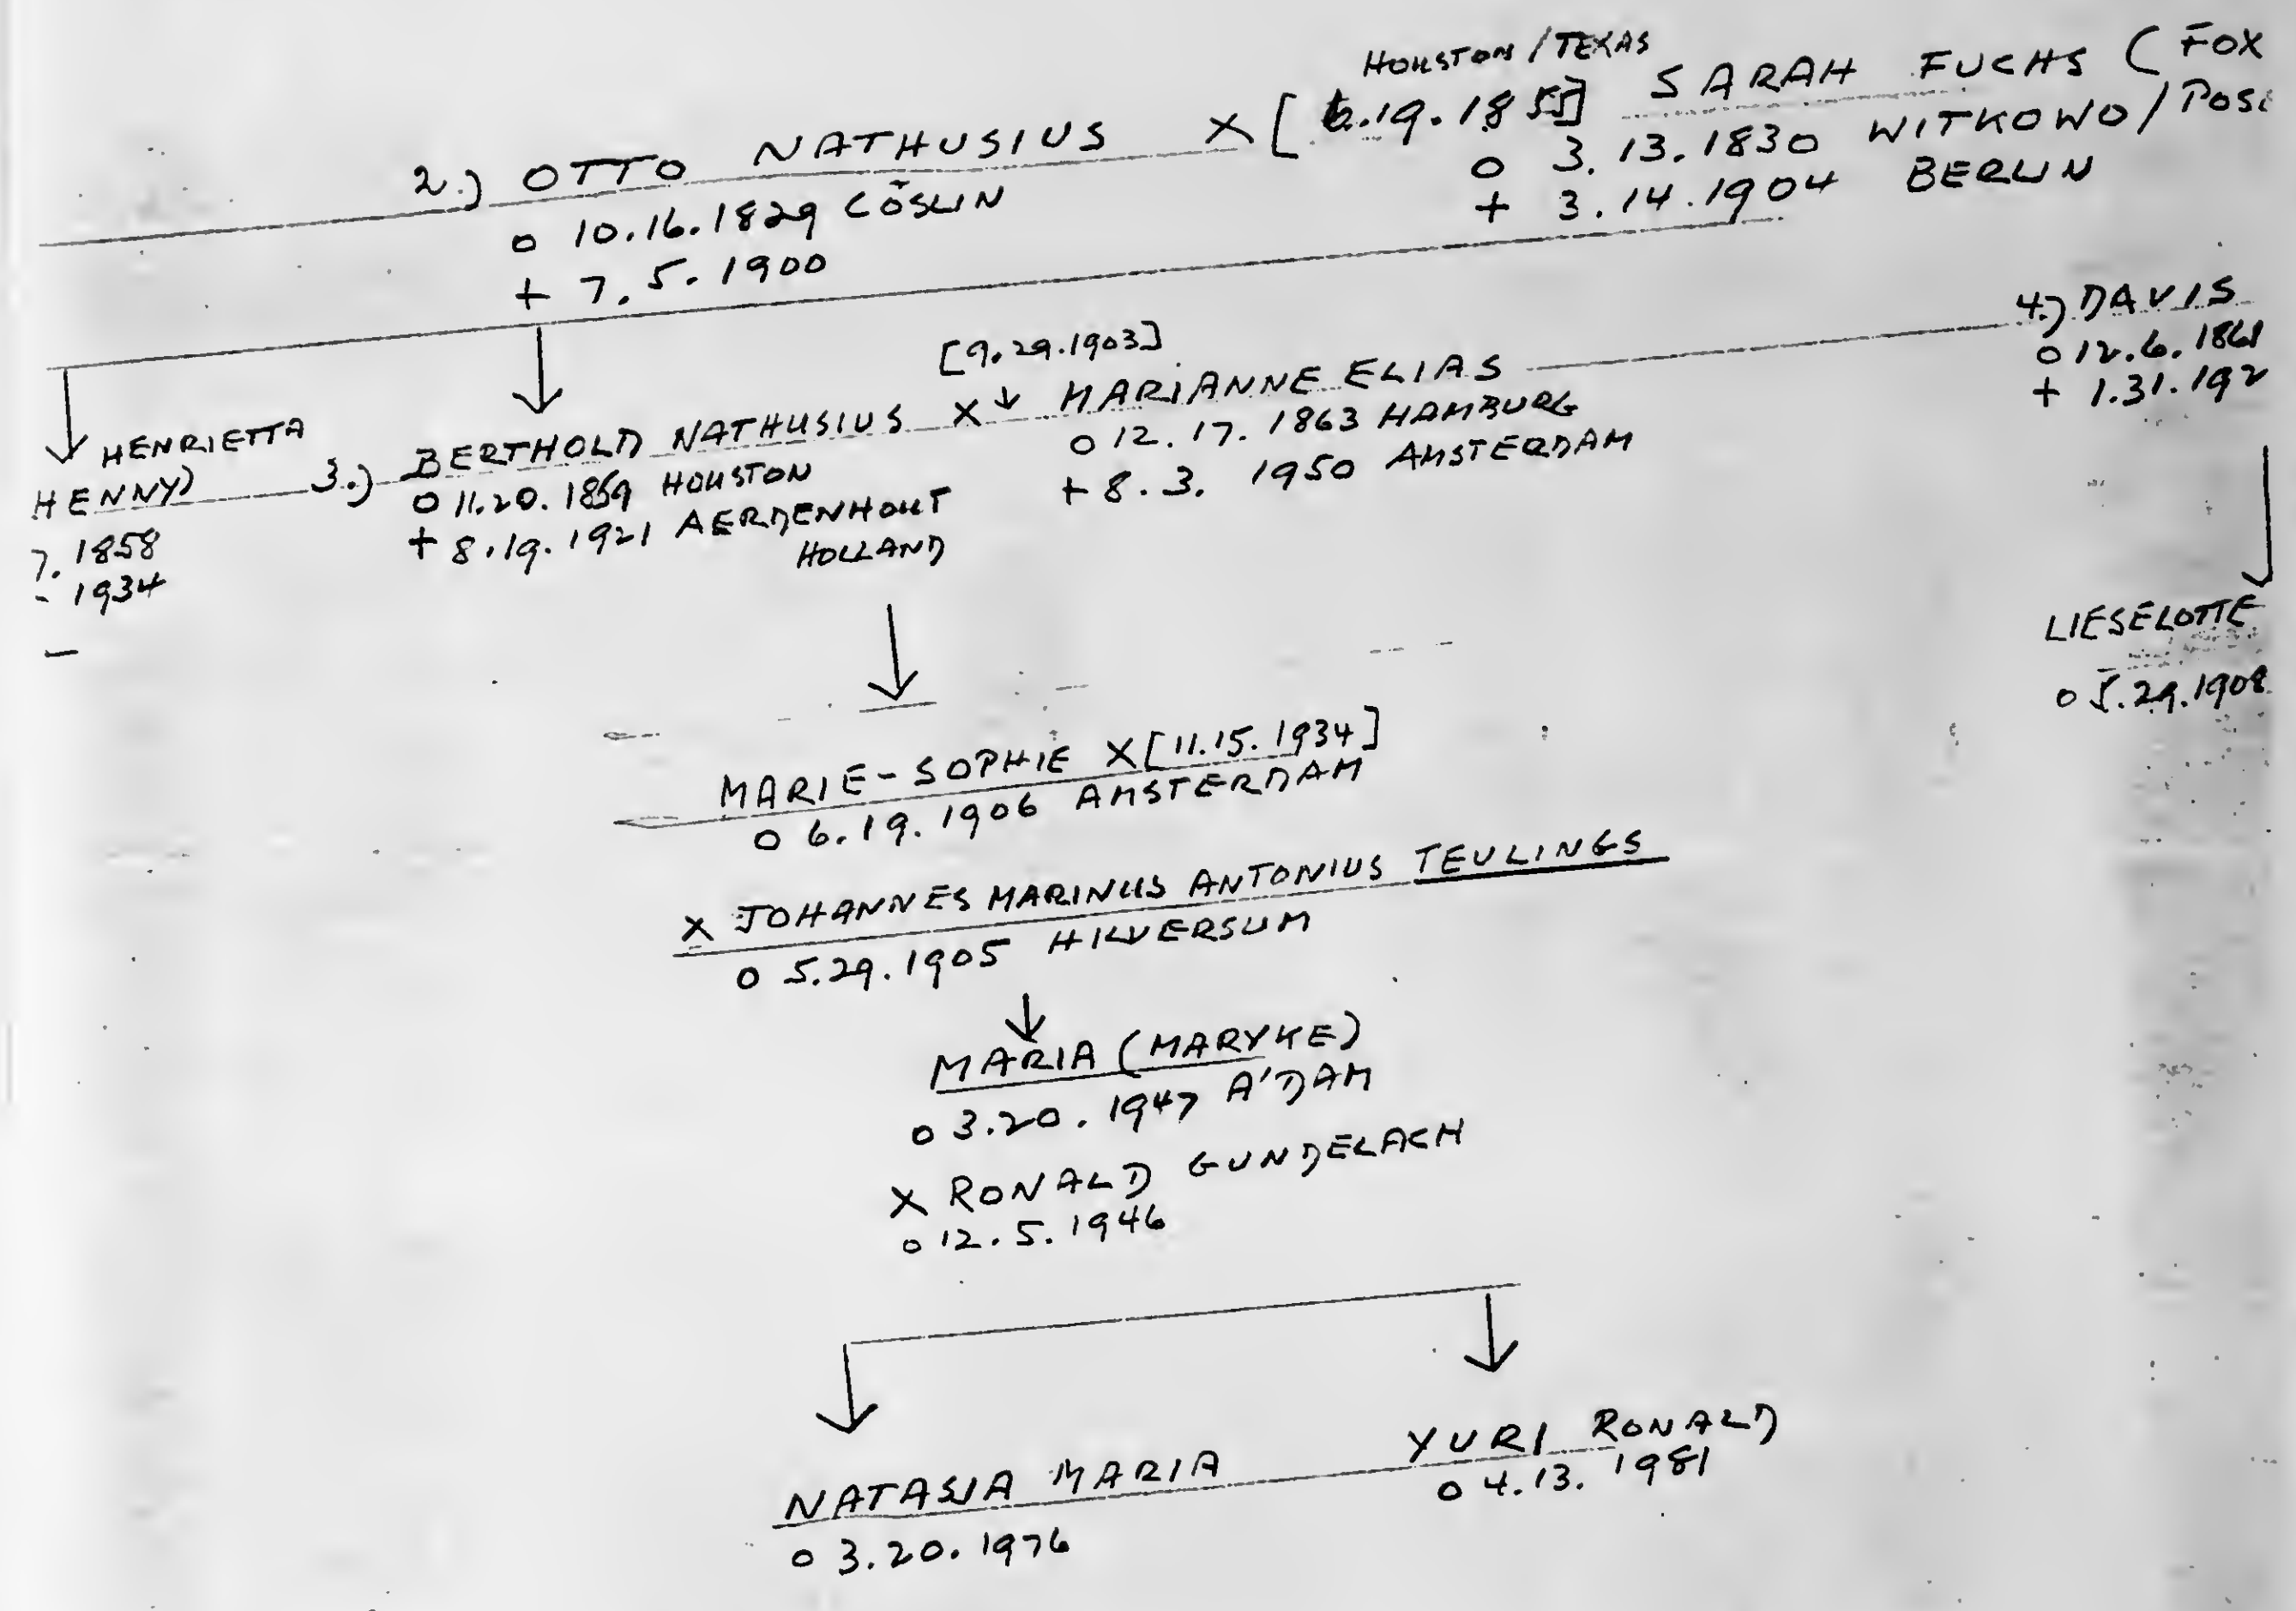 HOUSTON / TEXAS
2.) OTTO NATHUSIUS X [6.19.1855] SARAH FUCHS (FOX
o 10.16.1829 CÖSLIN
+ 7.5.1900
o 3.13.1830 WITKOWO/POSE
+ 3.14.1904 BERLIN
HENRIETTA
HENNY)
7. 1858
- 1934
—
[9.29.1903]
3.) BERTHOLD NATHUSIUS X ↓ MARIANNE ELIAS
o 11.20.1859 HOUSTON
+ 8.19.1921 AERDENHOUT
HOLLAND
o 12.17.1863 HAMBURG
+ 8.3. 1950 AMSTERDAM
4.) DAVIS
o 12.6.1861
+ 1.31.192
LIESELOTTE
o 5.29.1908
MARIE-SOPHIE X [11.15.1934]
o 6.19.1906 AMSTERDAM
X JOHANNES MARINUS ANTONIUS TEULINGS
o 5.29.1905 HILVERSUM
MARIA (MARYKE)
o 3.20.1947 A'DAM
X RONALD GUNDELACH
o 12.5.1946
NATASJA MARIA
o 3.20.1976
YURI RONALD
o 4.13.1981